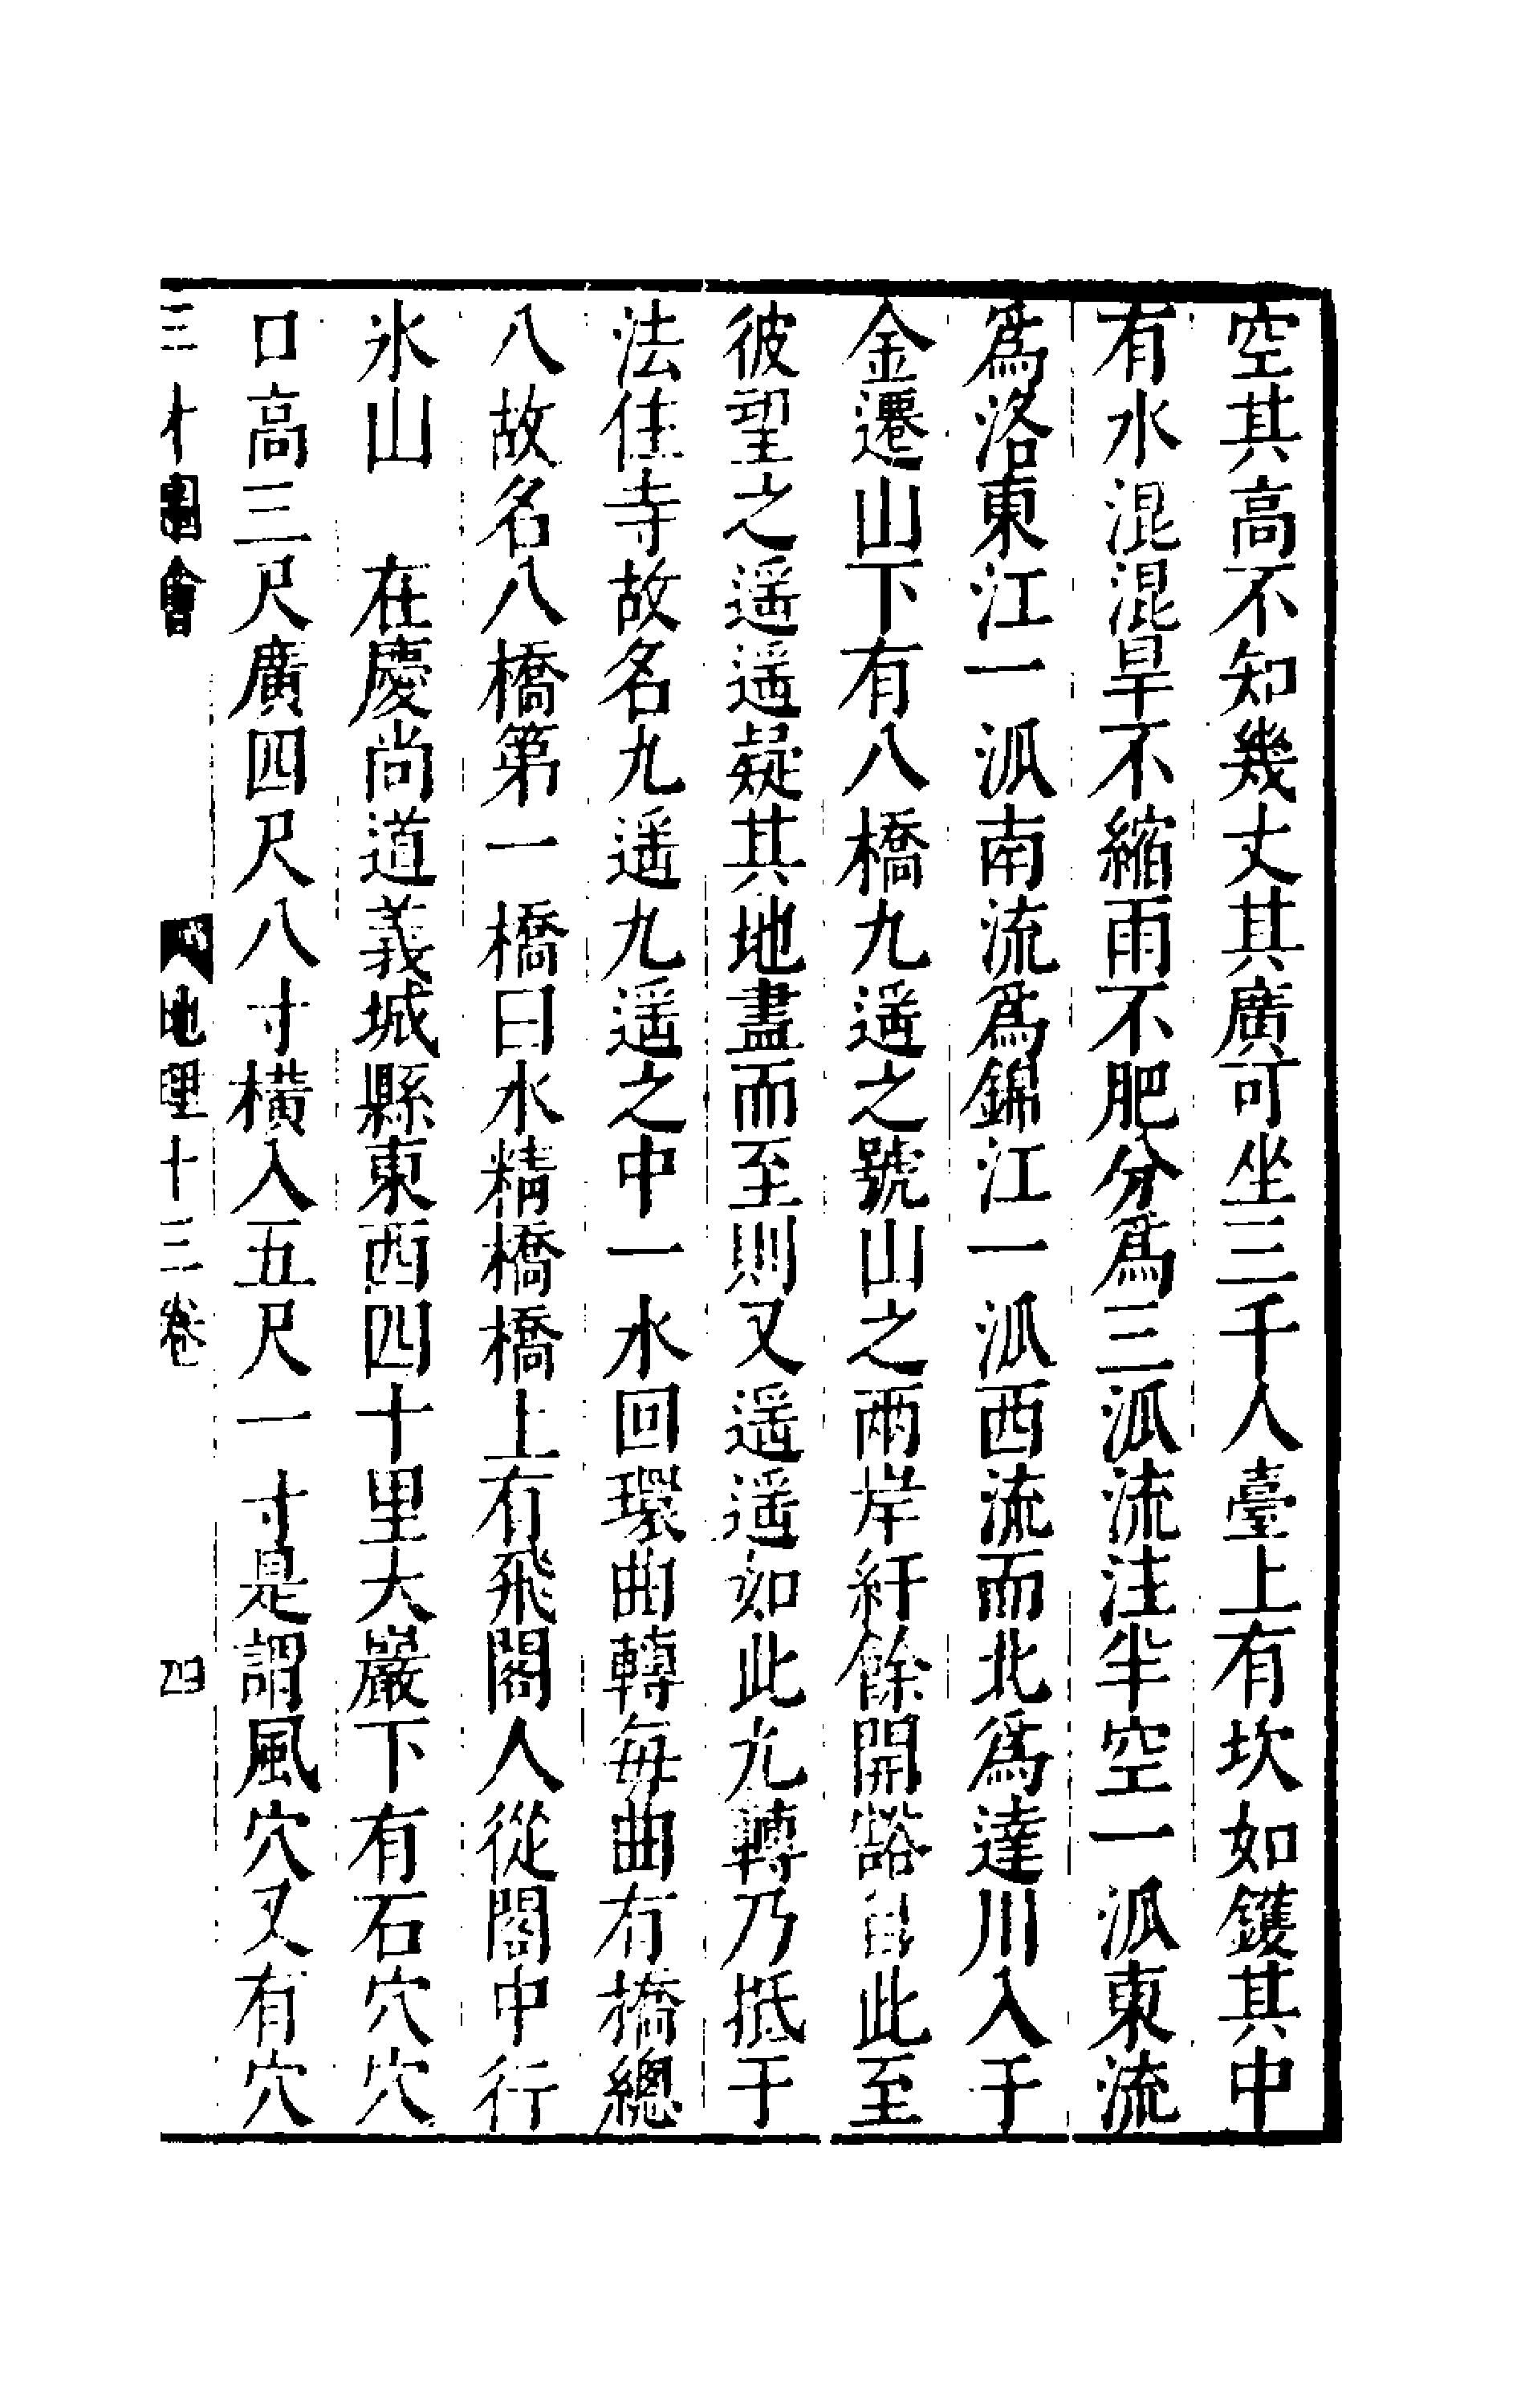 空其高不知幾丈其廣可坐三千人臺上有坎如鑊其中
有水混混旱不縮雨不肥分爲三泒流注半空一泒東流
爲洛東江一泒南流爲錦江一泒西流而北爲達川入于
金遷山下有八橋九遥之號山之兩岸紆餘開豁自此至
彼望之遥遥疑其地盡而至則又遥遥如此九轉乃抵于
法住寺故名九遥九遥之中一水回環曲轉每曲有橋總
八故名八橋第一橋曰水精橋橋上有飛閣人從閣中行
氷山　在慶尚道義城縣東西四十里大巖下有石穴穴
口高三尺廣四尺八寸橫入五尺一寸是謂風穴又有穴
三才圖會　地理十三卷　四